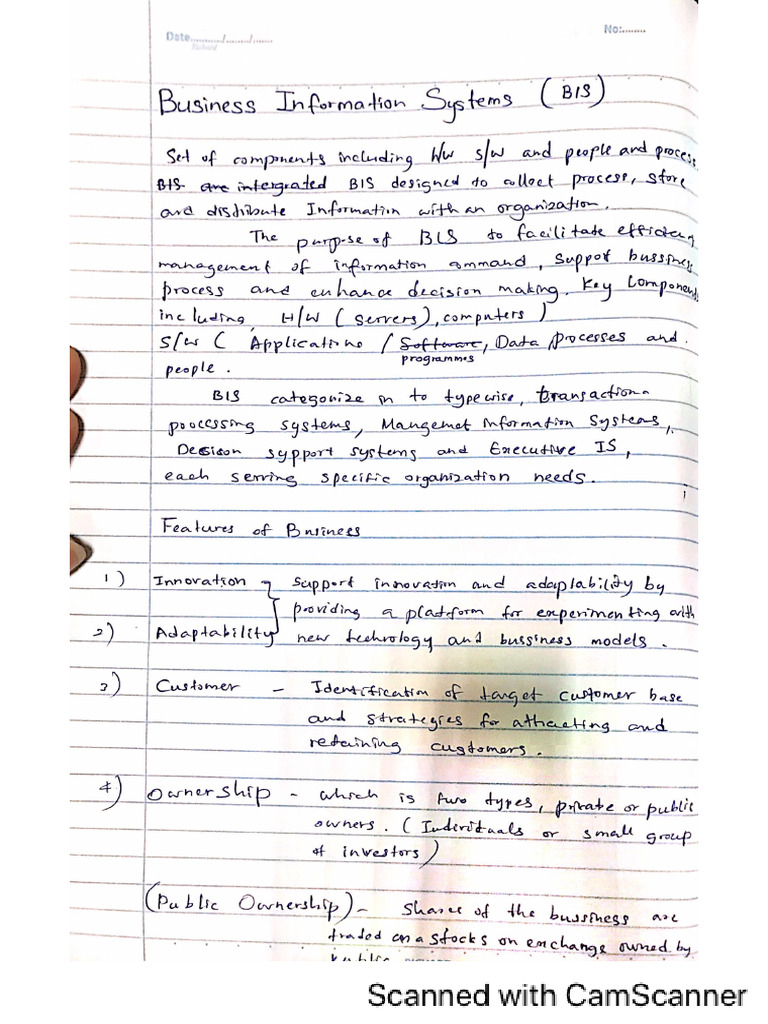 Date............/........./.......
No:.........
Richard
Business Information Systems (BIS)
Set of components including H/W S/W and people and process
BIS are intergrated BIS designed to collect process, store
and distribute Information with an organization.
The purpose of BIS to facilitate efficiency
management of information command, Support bussiness
process and enhance decision making. Key Components
including, H/W (servers), computers)
S/W ( Applications / Software, Data, processes and.
programmes
people.
BIS categorize in to typewise, transaction
processing systems, Mangemet Information Systems,
Decision support systems and Executive IS,
each serving specific organization needs.
Features of Business
1) Innovation } Support innovation and adaptability by
providing a platform for experimenting with
2) Adaptability new technology and bussiness models.
3) Customer – Identification of target customer base
and strategies for attracting and
retaining customers.
4) Ownership – which is two types, private or public
owners. (Individuals or small group
of investors)
(Public Ownership) – Shares of the bussiness are
traded on a stocks on exchange owned by
public
Scanned with CamScanner